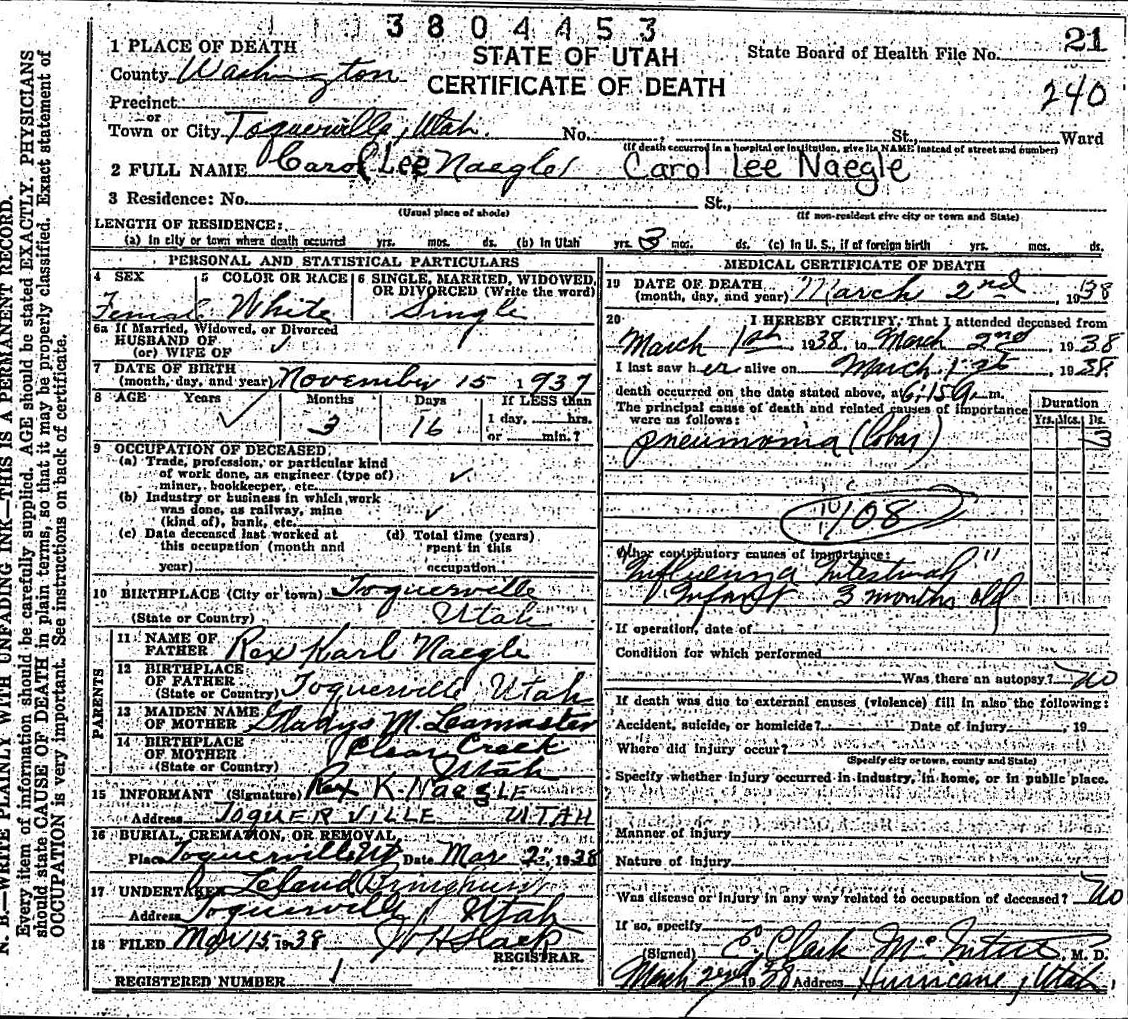 3 8 0 4 4 5 3
STATE OF UTAH
CERTIFICATE OF DEATH
State Board of Health File No. 21
240
1 PLACE OF DEATH
County Washington
Precinct
or
Town or City Toquerville, Utah. No. , St, Ward
(If death occurred in a hospital or institution, give its NAME instead of street and number)
2 FULL NAME Carol Lee Naegle Carol Lee Naegle
3 Residence: No. St.,
(Usual place of abode) (If non-resident give city or town and State)
LENGTH OF RESIDENCE:
(a) In city or town where death occurred yrs. mos. ds. (b) In Utah yrs. 3 mos. ds. (c) In U. S., if of foreign birth yrs. mos. ds.
PERSONAL AND STATISTICAL PARTICULARS
4 SEX 5 COLOR OR RACE 6 SINGLE, MARRIED, WIDOWED, OR DIVORCED (Write the word)
Female White Single
6a If Married, Widowed, or Divorced
HUSBAND OF
(or) WIFE OF
7 DATE OF BIRTH
(month, day, and year) November 15 1937
8 AGE Years Months Days If LESS than
1 day, hrs.
or min.?
3 16
9 OCCUPATION OF DECEASED:
(a) Trade, profession, or particular kind
of work done, as engineer (type of)
miner, bookkeeper, etc.
(b) Industry or business in which work
was done, as railway, mine
(kind of), bank, etc.
(c) Date deceased last worked at
this occupation (month and
year)
(d) Total time (years)
spent in this
occupation
10 BIRTHPLACE (City or town) Toquerville
(State or Country) Utah
PARENTS
11 NAME OF
FATHER Rex Karl Naegle
12 BIRTHPLACE
OF FATHER
(State or Country) Toquerville Utah
13 MAIDEN NAME
OF MOTHER Gladys M. Leamaster
14 BIRTHPLACE
OF MOTHER Clear Creek
(State or Country) Utah
15 INFORMANT (Signature) Rex K. Naegle
Address TOQUERVILLE UTAH
16 BURIAL, CREMATION, OR REMOVAL
Place Toquerville Ut Date Mar 2", 1938
17 UNDERTAKER Leland
Address Toquerville, Utah
18 FILED Mar 15 1938 W H Slack
REGISTRAR.
REGISTERED NUMBER 1
MEDICAL CERTIFICATE OF DEATH
19 DATE OF DEATH
(month, day, and year) March 2nd, 1938
20 I HEREBY CERTIFY, That I attended deceased from
March 1st, 1938, to March 2nd, 1938
I last saw her alive on March 1st, 1938
death occurred on the date stated above, at 6:15 a. m.
The principal cause of death and related causes of importance
were as follows:
Duration
Yrs. Mos. Ds.
pneumonia (lobar) 3
108
Other contributory causes of importance:
Influenza Intestinal"
Infant 3 months old
If operation, date of
Condition for which performed
Was there an autopsy? no
If death was due to external causes (violence) fill in also the following:
Accident, suicide, or homicide? Date of injury , 19
Where did injury occur?
(Specify city or town, county and State)
Specify whether injury occurred in industry, in home, or in public place.
Manner of injury
Nature of injury
Was disease or injury in any way related to occupation of deceased? no
If so, specify
(Signed) E. Clark McIntire, M. D.
March 2nd 1938 Address Hurricane, Utah
N. B.—WRITE PLAINLY WITH UNFADING INK—THIS IS A PERMANENT RECORD.
Every item of information should be carefully supplied. AGE should be stated EXACTLY. PHYSICIANS
should state CAUSE OF DEATH in plain terms, so that it may be properly classified. Exact statement of
OCCUPATION is very important. See instructions on back of certificate.